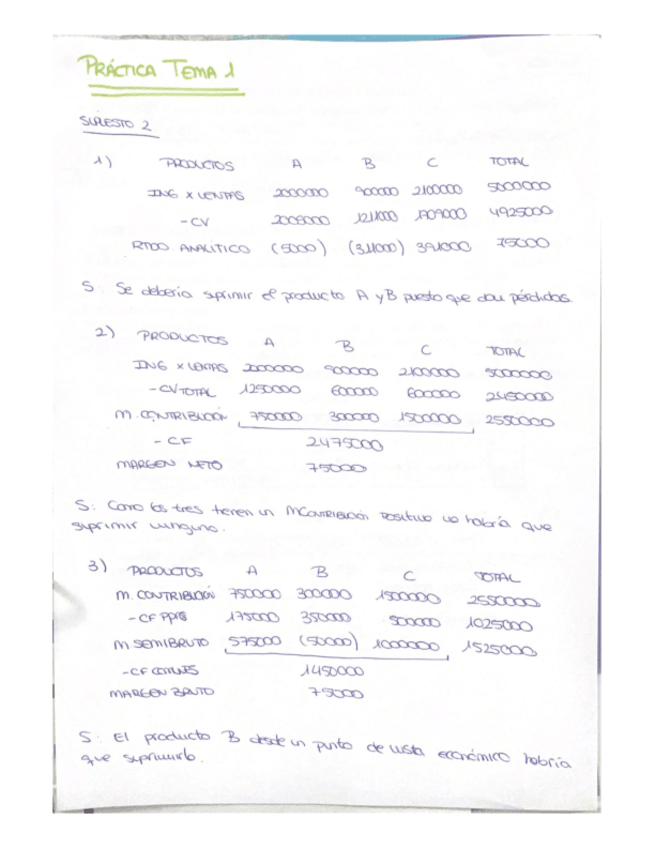 PRÁCTICA TEMA 1
SUPUESTO 2
1) PRODUCTOS A B C TOTAL
ING X VENTAS 2000000 900000 2100000 5000000
- CV 2005000 1211000 1709000 4925000
RTDO ANALÍTICO (5000) (311000) 391000 75000
S. Se debería suprimir el producto A y B puesto que dan pérdidas.
2) PRODUCTOS A B C TOTAL
ING X VENTAS 2000000 900000 2100000 5000000
- CV TOTAL 1250000 600000 600000 2450000
M. CONTRIBUCIÓN 750000 300000 1500000 2550000
- CF 2475000
MARGEN NETO 75000
S: Como los tres tienen un MCONTRIBUCIÓN POSITIVO no habría que
suprimir ninguno.
3) PRODUCTOS A B C TOTAL
M. CONTRIBUCIÓN 750000 300000 1500000 2550000
- CF PPIOS 175000 350000 500000 1025000
M SEMIBRUTO 575000 (50000) 1000000 1525000
- CF COMUNES 1450000
MARGEN BRUTO 75000
S: El producto B desde un punto de vista económico habría
que suprimirlo.